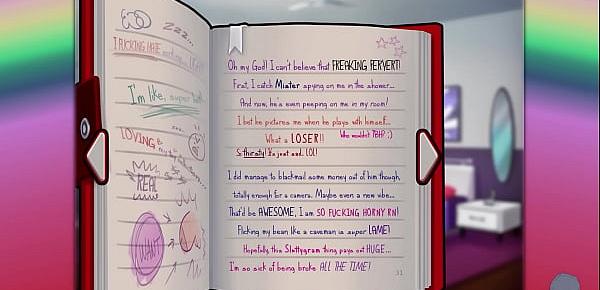 ZZZ...
I FUCKING HATE
I'm like, super
LOVING
REAL
I WANT
Oh my God! I can't believe that FREAKING PERVERT!
First, I catch Mister spying on me in the shower...
And now, he's even peeping on me in my room!
I bet he pictures me when he plays with himself...
What a LOSER!! Who wouldn't TBH? ;)
So thirsty! It's just sad.. LOL!
I did manage to blackmail some money out of him though,
totally enough for a camera. Maybe even a new vibe...
That'd be AWESOME, I am SO FUCKING HORNY RN!
Flicking my bean like a caveman is super LAME!
Hopefully this Sluttygram thing pays out HUGE...
I'm so sick of being broke ALL THE TIME!
31